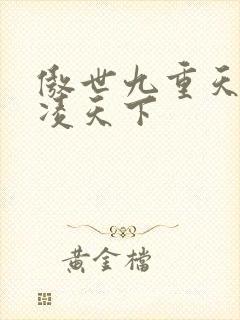 傲世九重天
凌天下
黄金檔